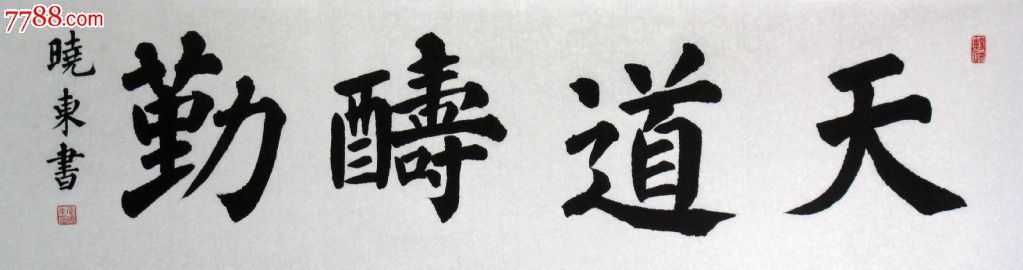 7788.com
天道醻勤
曉東書